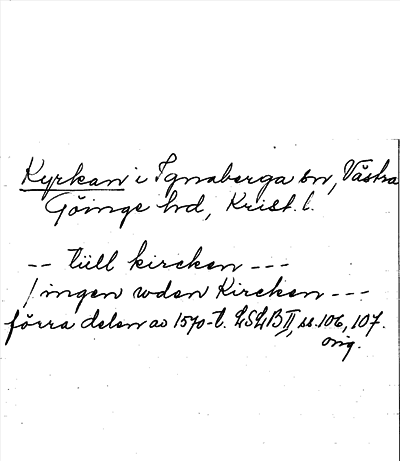 Kyrkan i Ignaberga sn, Västra
Göinge hd, Krist. l.
-- tüll kircken ---
/ ingen wden Kircken ---
förra delen av 1570-t. LSLB II, ss. 106, 107.
orig.